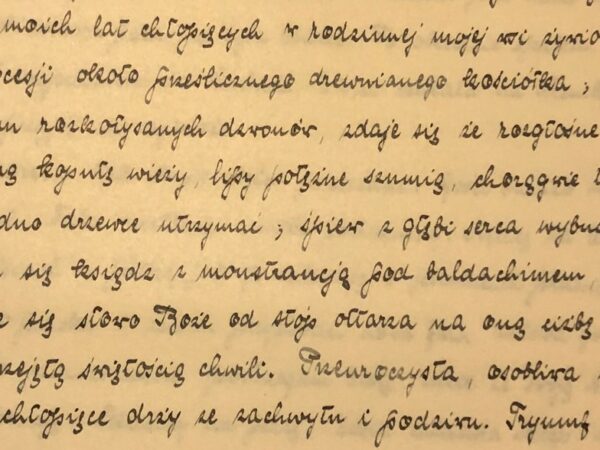 moich lat chłopięcych w rodzinnej mojej wsi żywio
ocesji około prześlicznego drewnianego kościółka ;
rozkołysanych dzwonów, zdaje się że rozgłośne
kopułę wieży, lipy potężne szumią, chorągwie
drzewce utrzymać ; śpiew z głębi serca wybu
się ksiądz z monstrancją pod baldachimem,
się słowo Boże od stóp ołtarza na oną ciżbę
zejętą świętością chwili. Przeuroczysta, osobliwa
chłopięce drży ze zachwytu i podziwu. Tryumf